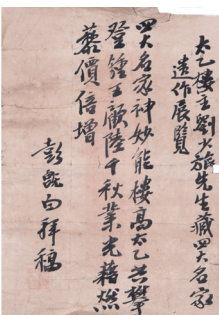 太乙樓主劉少旅先生藏四大名家
遺作展覽
四大名家神妙能樓高太乙共攀
登鍾王顧陸千秋業光藉燃
藜價倍增
彭白拜稿